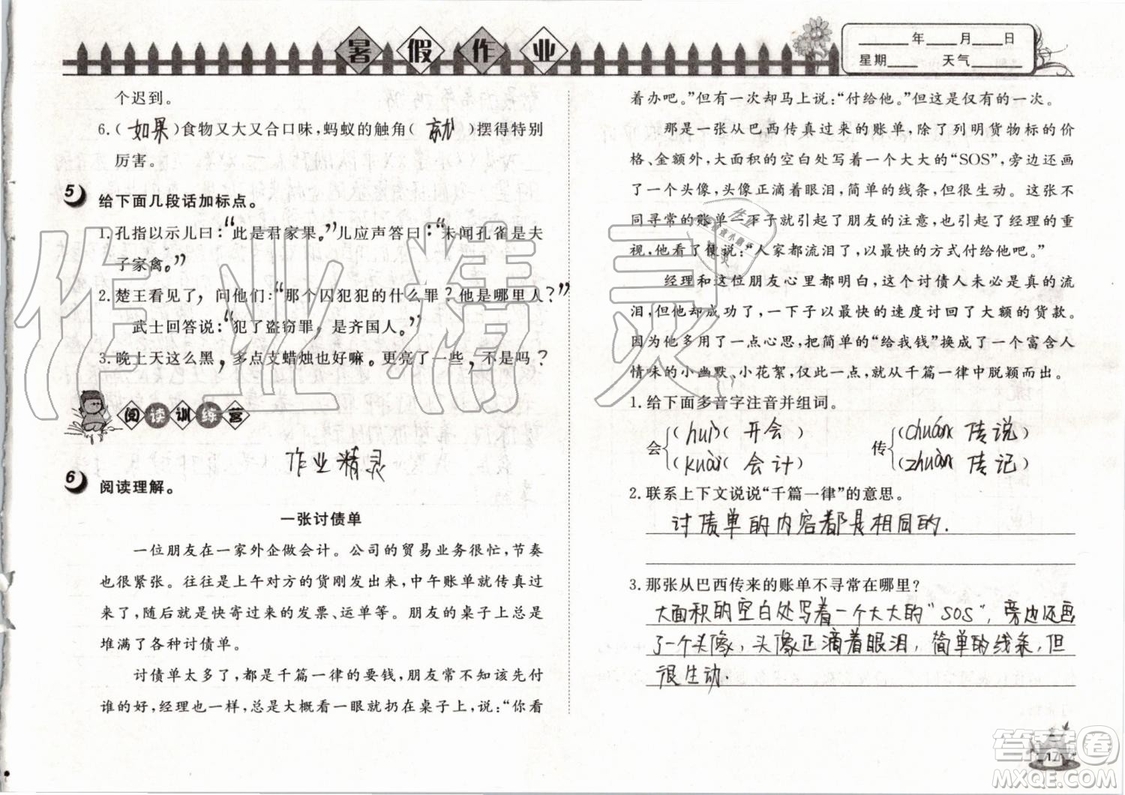 暑假作业
____年____月____日
星期____ 天气____
个迟到。
6.(如果)食物又大又合口味，蚂蚁的触角(就)摆得特别
厉害。
5 给下面几段话加标点。
1.孔指以示儿曰：“此是君家果。”儿应声答曰：“未闻孔雀是夫
子家禽。”
2.楚王看见了，问他们：“那个囚犯犯的什么罪？他是哪里人？”
武士回答说：“犯了盗窃罪，是齐国人。”
3.晚上天这么黑，多点支蜡烛也好嘛。更亮了一些，不是吗？
阅读训练营
作业精灵
6 阅读理解。
一张讨债单
一位朋友在一家外企做会计。公司的贸易业务很忙，节奏
也很紧张。往往是上午对方的货刚发出来，中午账单就传真
过来了，随后就是快寄过来的发票、运单等。朋友的桌子上总是
堆满了各种讨债单。
讨债单太多了，都是千篇一律的要钱，朋友常不知该先付
谁的好，经理也一样，总是大概看一眼就扔在桌子上，说：“你看
着办吧。”但有一次却马上说：“付给他。”但这是仅有的一次。
那是一张从巴西传真过来的账单，除了列明货物标的价
格、金额外，大面积的空白处写着一个大大的“SOS”，旁边还画
了一个头像，头像正滴着眼泪，简单的线条，但很生动。这张不
同寻常的账单一下子就引起了朋友的注意，也引起了经理的重
视，他看了便说：“人家都流泪了，以最快的方式付给他吧。”
经理和这位朋友心里都明白，这个讨债人未必是真的流
泪，但他却成功了，一下子以最快的速度讨回了大额的货款。
因为他多用了一点心思，把简单的“给我钱”换成了一个富含人
情味的小幽默、小花絮，仅此一点，就从千篇一律中脱颖而出。
1.给下面多音字注音并组词。
会{(huì)(开会) 传{(chuán 传说)
(kuài)(会计) (zhuàn 传记)
2.联系上下文说说“千篇一律”的意思。
讨债单的内容都是相同的.
3.那张从巴西传来的账单不寻常在哪里？
大面积的空白处写着一个大大的“SOS”，旁边还画
了一个头像，头像正滴着眼泪，简单的线条，但
很生动.
12
作业精灵
答案卷
MXQE.COM